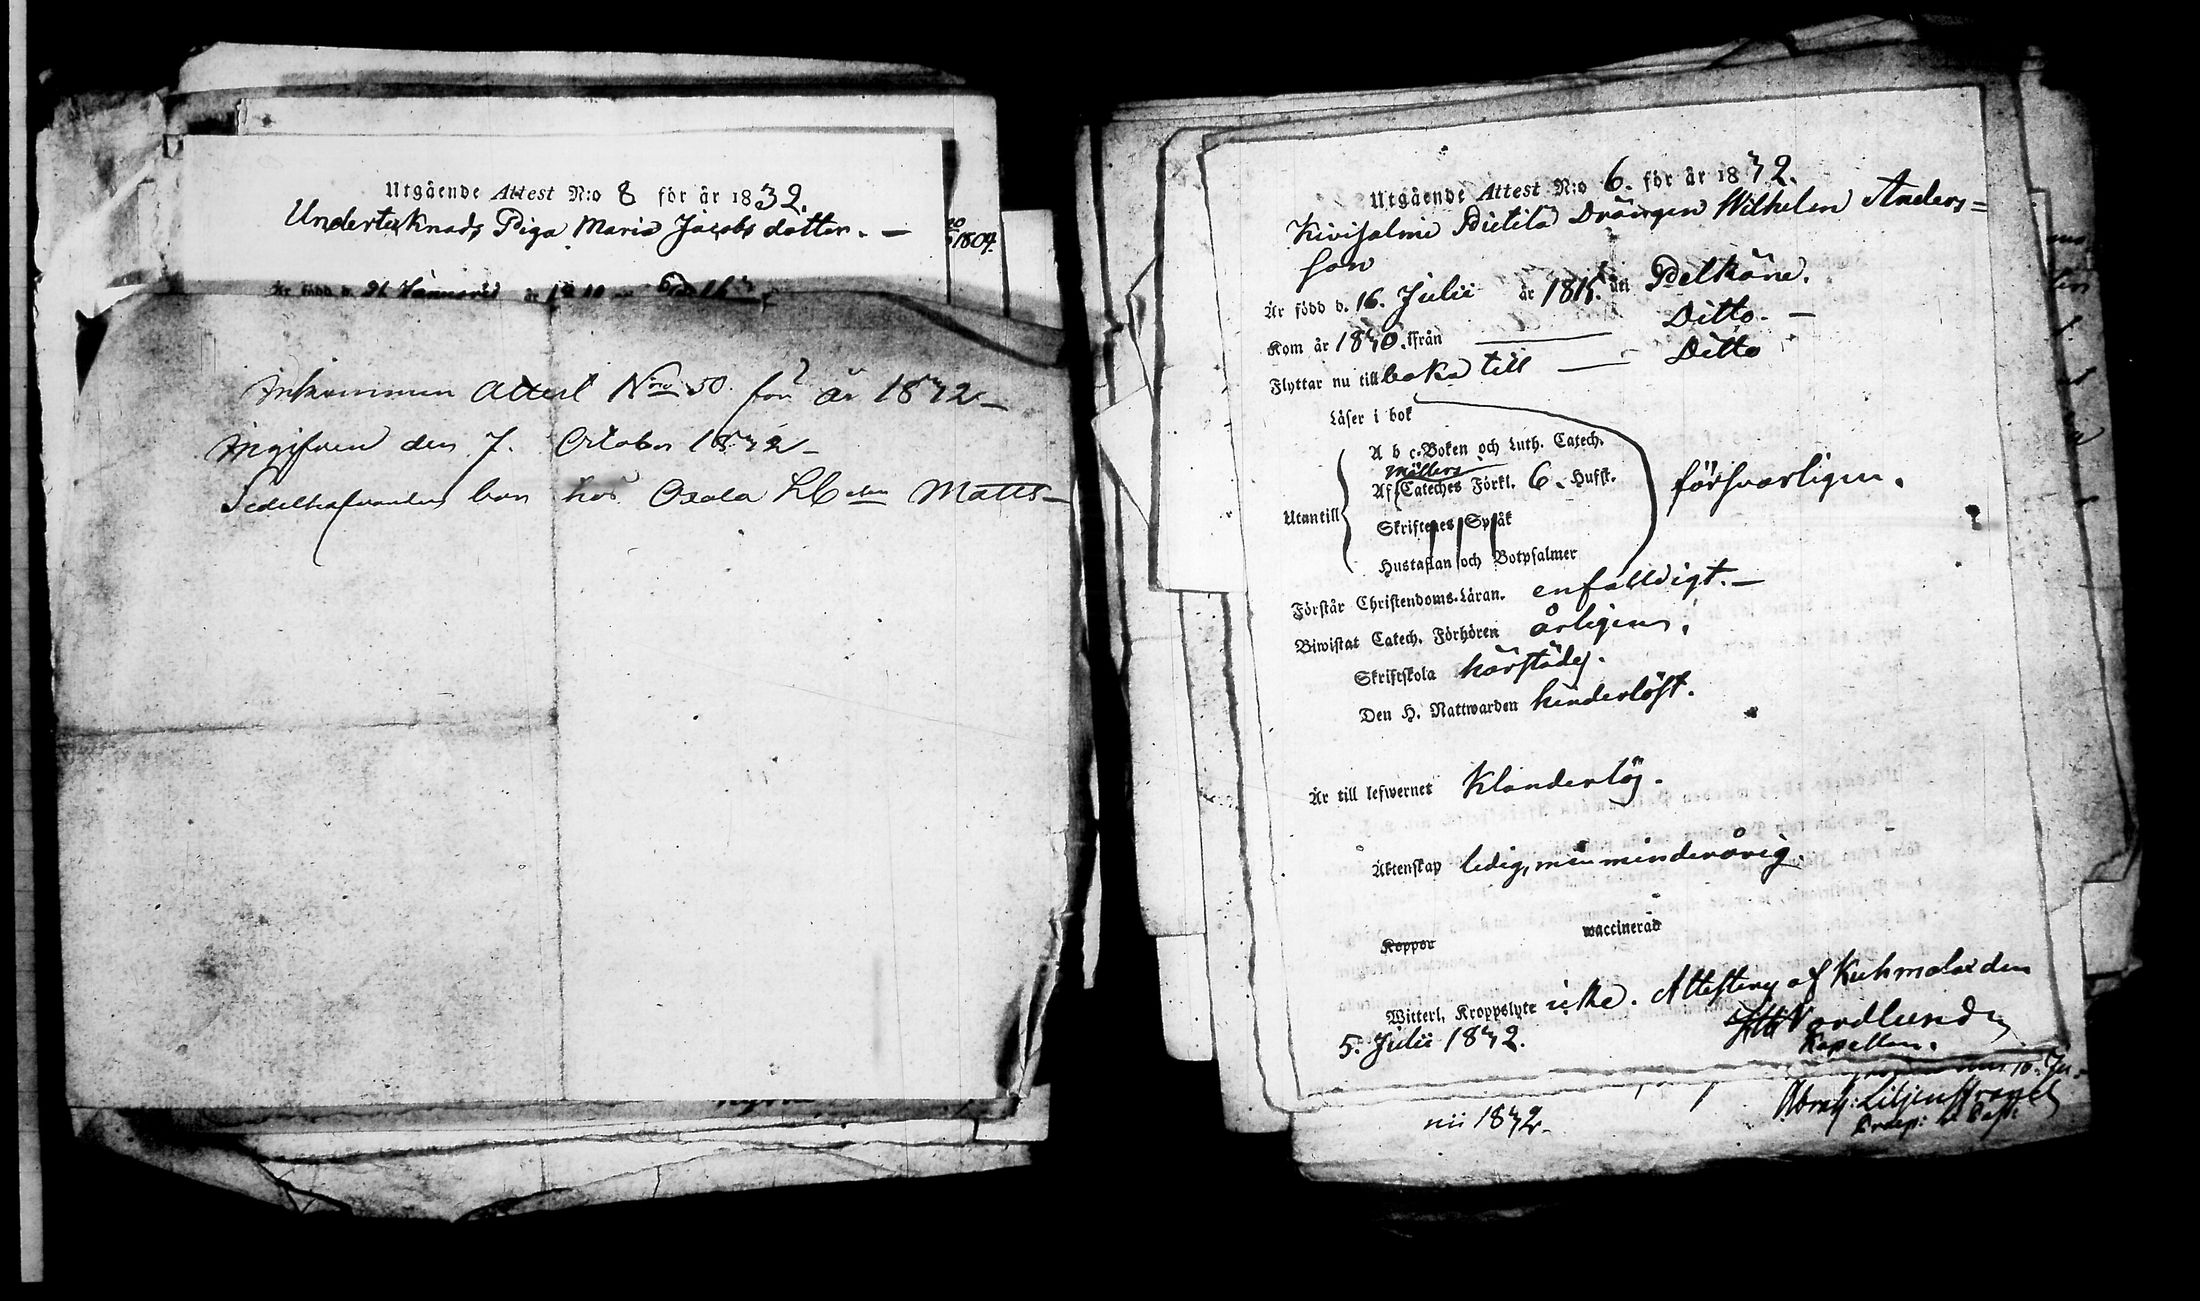 Utgående Attest N:o 8 för år 1832.
Undertecknads Piga Maria Jacobs dotter. —
1804.
Är född d. 26 Januarii år 18
Inkommen Attest Nro 50. för år 1832 —
Ingifven den 7. October 1832 —
Sedelhafvanden bor hos Oxala Matts —
Utgående Attest N:o 6. för år 1832.
Kivisalmi Pietilä Drängen Wilhelm Anders=
son
Är född d. 16. Julii år 1815. uti Pelkäne.
Kom år 1830. ifrån — Ditto. —
Flyttar nu tillbaka till — Ditto
Läser i bok
A b c-Boken och Luth. Catech.
Möllers
Af Cateches Förkl. 6. Hufst.
försvarligen.
Utantill
Skriftenes Språk
Hustaflan och Botpsalmer
Förstår Christendoms-Läran. enfaldigt. —
Biwistat Catech. Förhören årligen.
Skriftskola härstädes.
Den H. Nattwarden hinderlöst.
Är till lefwernet Klanderlös.
Äktenskap ledig, men minderårig.
Koppor waccinerad
Witterl. Kroppslyte icke. Attesteras af Kuhmalax den
5. Julii 1832.
Nordlund
Kapellan.
den 10. Ju=
nii 1832.
Abrah: Liljenstrand